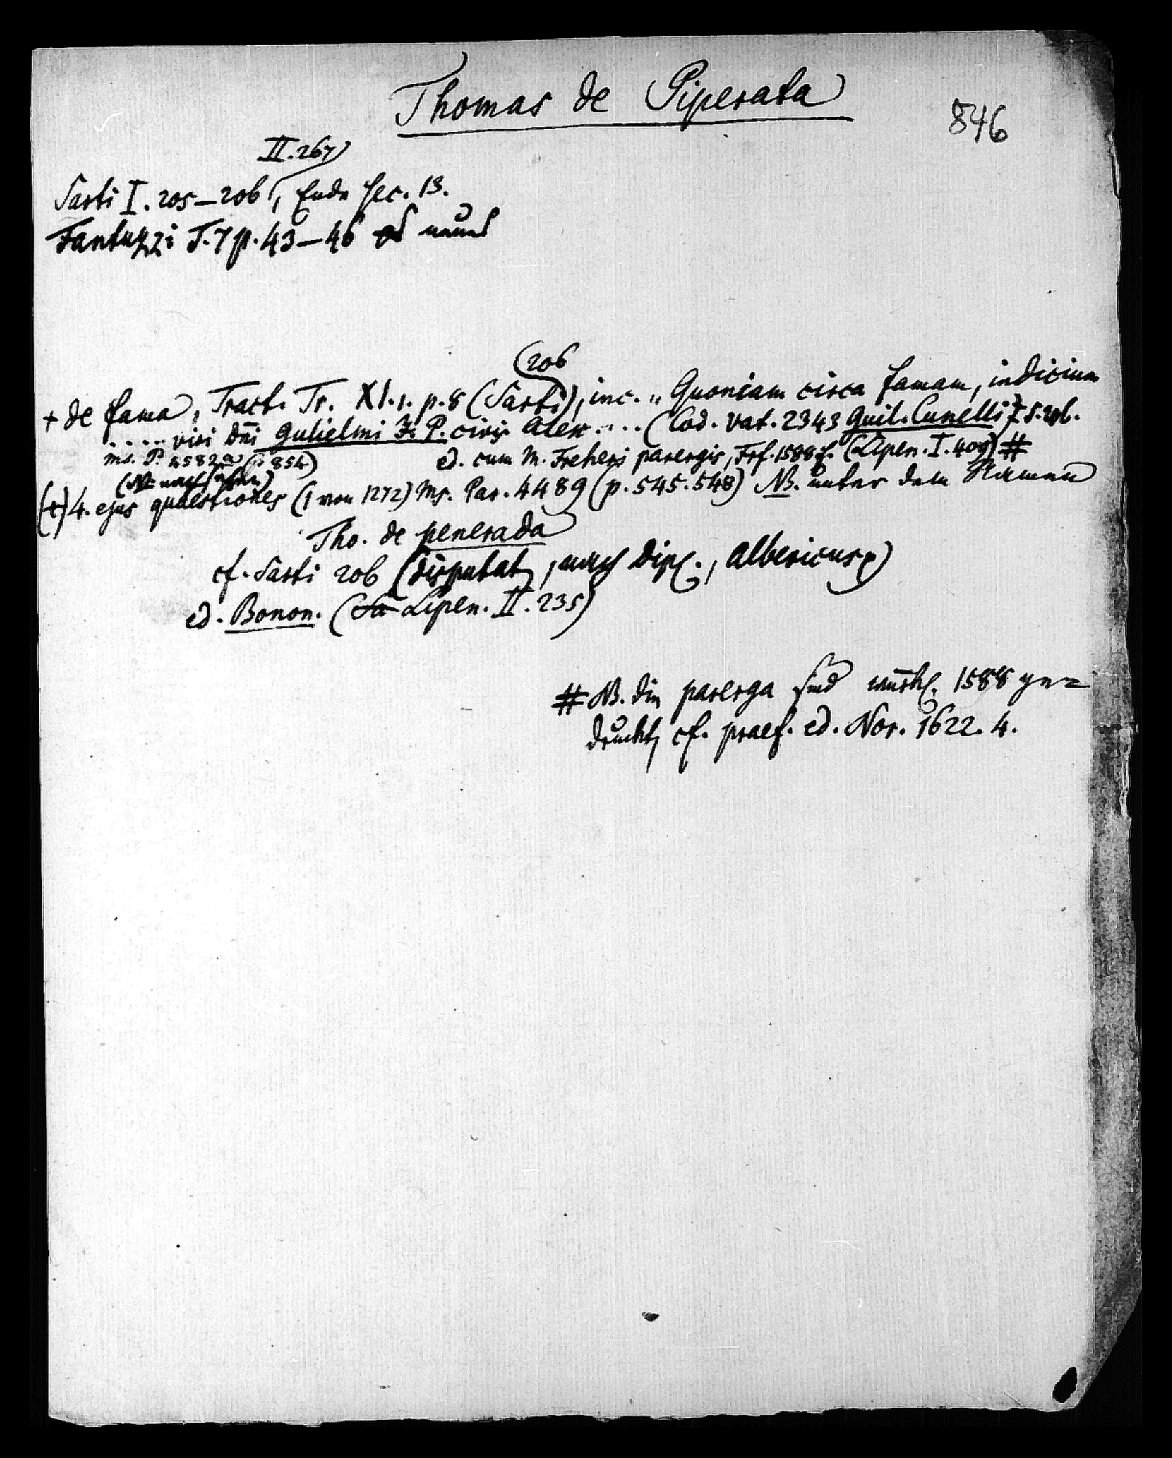 Thomas de Piperata
846
II. 267
Sarti I. 205–206, Ende sec. 13.
Fantuzzi T. 7 p. 43–46
206
+ de fama, Tract. Tr. XI. 1. p. 8 (Sarti), inc. „Quoniam circa famam, indicium
..... viri dñi Gulielmi P. civis Alex .... (Cod. Vat. 2343 Guil. Cunelli
ms. P. 4582a (: 854) ed. cum M. Freheri parergis, Frf. 1588 f. (Lipen. I. 409) #
(NB nachsehen)
(+) 4. ejus quaestiones (1 von 1272) Ms. Par. 4489 (p. 545. 548) NB. unter dem Namen
Tho. de penerada
cf. Sarti 206 (disputat, nach Dipl., Albericus)
ed. Bonon. (Lipen. II. 235)
# NB. die parerga sind 1588 ge=
druckt, cf. praef. ed. Nor. 1622. 4.